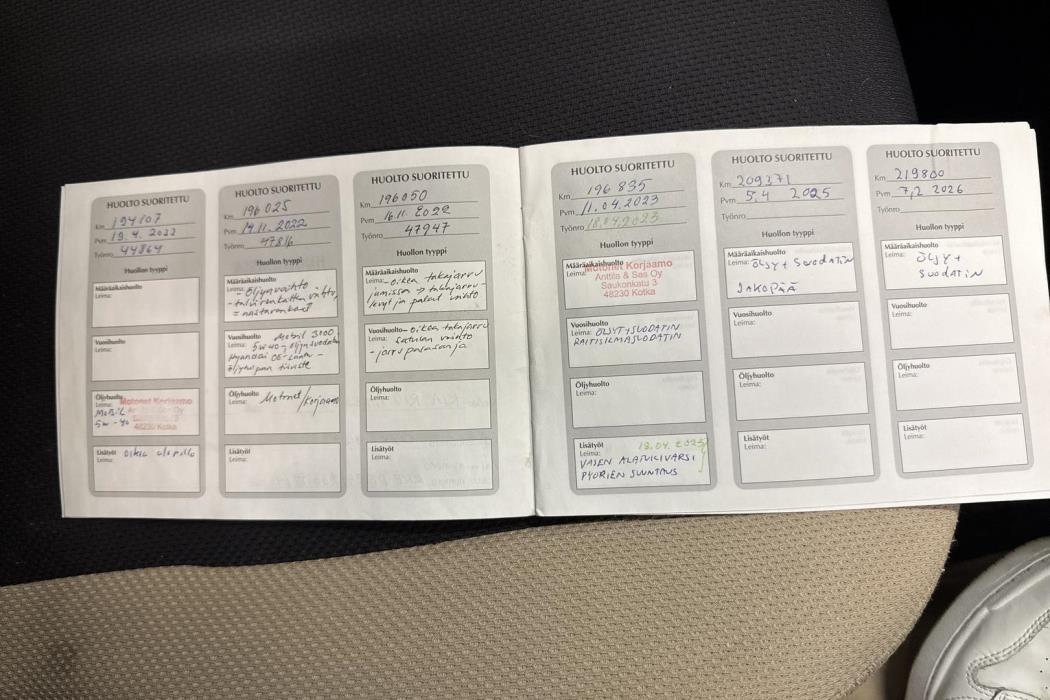 HUOLTO SUORITETTU
Km 194107
Pvm 19.4. 2022
Työnro 44864
Huollon tyyppi
Määräaikaishuolto
Leima:
Vuosihuolto
Leima:
Öljyhuolto
Leima:
Motonet Korjaamo
Mobil
5w-40
48230 Kotka
Lisätyöt
Leima: oikea
HUOLTO SUORITETTU
Km 196025
Pvm 14.11. 2022
Työnro 47816
Huollon tyyppi
Määräaikaishuolto
Leima: - Öljynvaihto
- talvirenkaitten vaihto,
= nastarenkaat
Vuosihuolto Mobil 3000
Leima: 5w40 - öljynsuodatin
Hyundai
öljytulpan tiiviste
Öljyhuolto
Leima: Motonet/Korjaamo
Lisätyöt
Leima:
HUOLTO SUORITETTU
Km 196050
Pvm 16.11. 2022
Työnro 47947
Huollon tyyppi
Määräaikaishuolto
Leima: - oikea takajarru
jumissa → takajarru-
levyt ja palat vaihto
Vuosihuolto - oikea takajarru
Leima: satulan vaihto
- jarrupalasarja
Öljyhuolto
Leima:
Lisätyöt
Leima:
HUOLTO SUORITETTU
Km 196 835
Pvm 11.04.2023
Työnro 18.04.2023
Huollon tyyppi
Määräaikaishuolto
Leima:
Motonet Korjaamo
Anttila & Sas Oy
Saukonkatu 3
48230 Kotka
Vuosihuolto
Leima: ÖLJYT+SUODATIN
RAITISILMASUODATIN
Öljyhuolto
Leima:
Lisätyöt 18.04.2023
Leima:
VASEN ALATUKIVARSI
PYÖRIEN SUUNTAUS
HUOLTO SUORITETTU
Km 209371
Pvm 5.4 2025
Työnro
Huollon tyyppi
Määräaikaishuolto
Leima: ÖLJY + SUODATIN
JAKOPÄÄ
Vuosihuolto
Leima:
Öljyhuolto
Leima:
Lisätyöt
Leima:
HUOLTO SUORITETTU
Km 219800
Pvm 7,2 2026
Työnro
Huollon tyyppi
Määräaikaishuolto
Leima: ÖLJY +
SUODATIN
Vuosihuolto
Leima:
Öljyhuolto
Leima:
Lisätyöt
Leima: